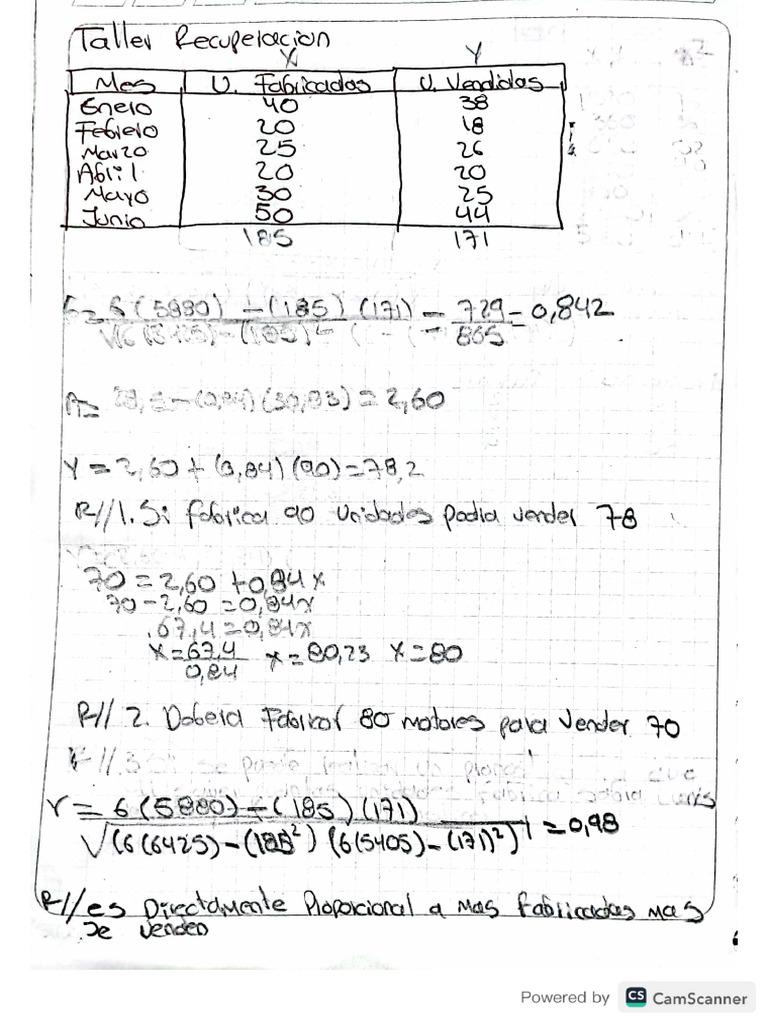 Taller Recuperacion
X Y
Mes U. Fabricados U. Vendidos
Enero 40 38
Febrero 20 18
Marzo 25 26
Abril 20 20
Mayo 30 25
Junio 50 44
185 171
6(5880) - (185)(171) = 729 = 0,842
865
A= (30,83) = 2,60
Y = 2,60 + (0,84)(90) = 78,2
R// 1. Si fabrica 90 Unidades podia vender 78
70 = 2,60 + 0,84x
70 - 2,60 = 0,84x
67,4 = 0,84x
x = 67,4 x = 80,23 x = 80
0,84
R// 2. Debera Fabricar 80 motores para vender 70
r = 6(5880) - (185)(171) = 0,98
√(6(6425) - (185²) (6(5405) - (171)²)
R// es Directamente Proporcional a mas fabricadas mas
se venden
Powered by CS CamScanner